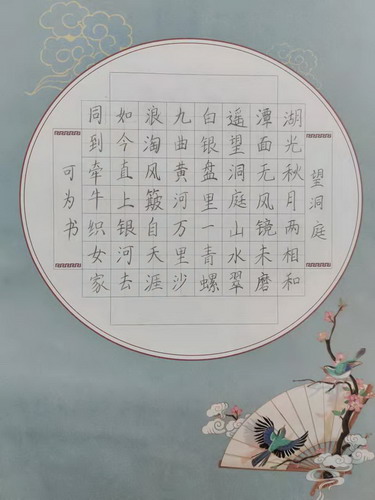 望洞庭
湖光秋月两相和
潭面无风镜未磨
遥望洞庭山水翠
白银盘里一青螺
九曲黄河万里沙
浪淘风簸自天涯
如今直上银河去
同到牵牛织女家
可为书